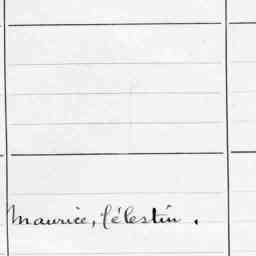 Maurice, Célestin.